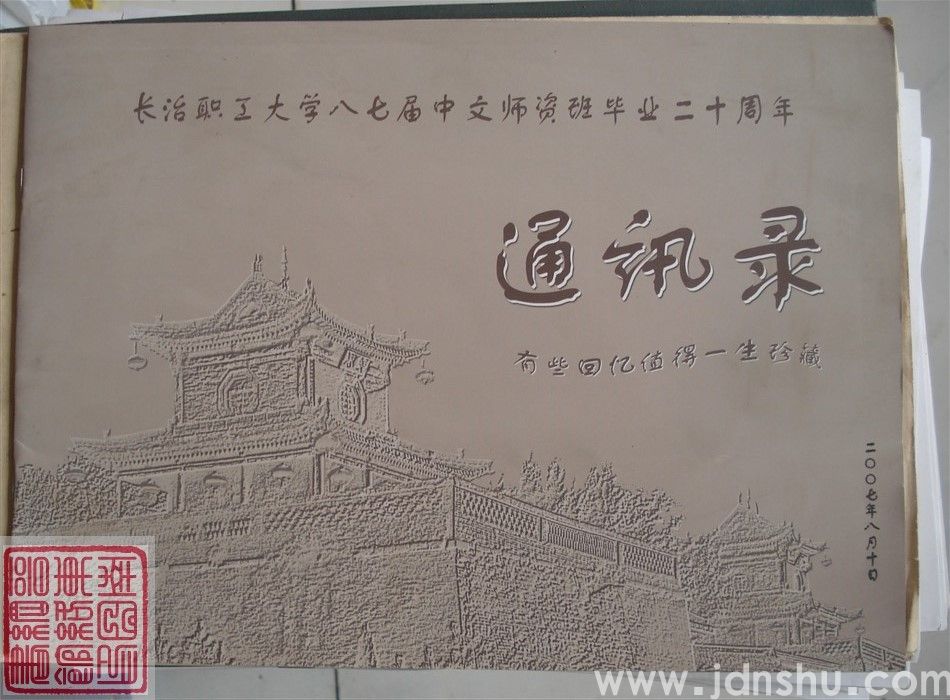 长治职工大学八七届中文师资班毕业二十周年
通讯录
有些回忆值得一生珍藏
二〇〇七年八月十日
www.jdnshu.com